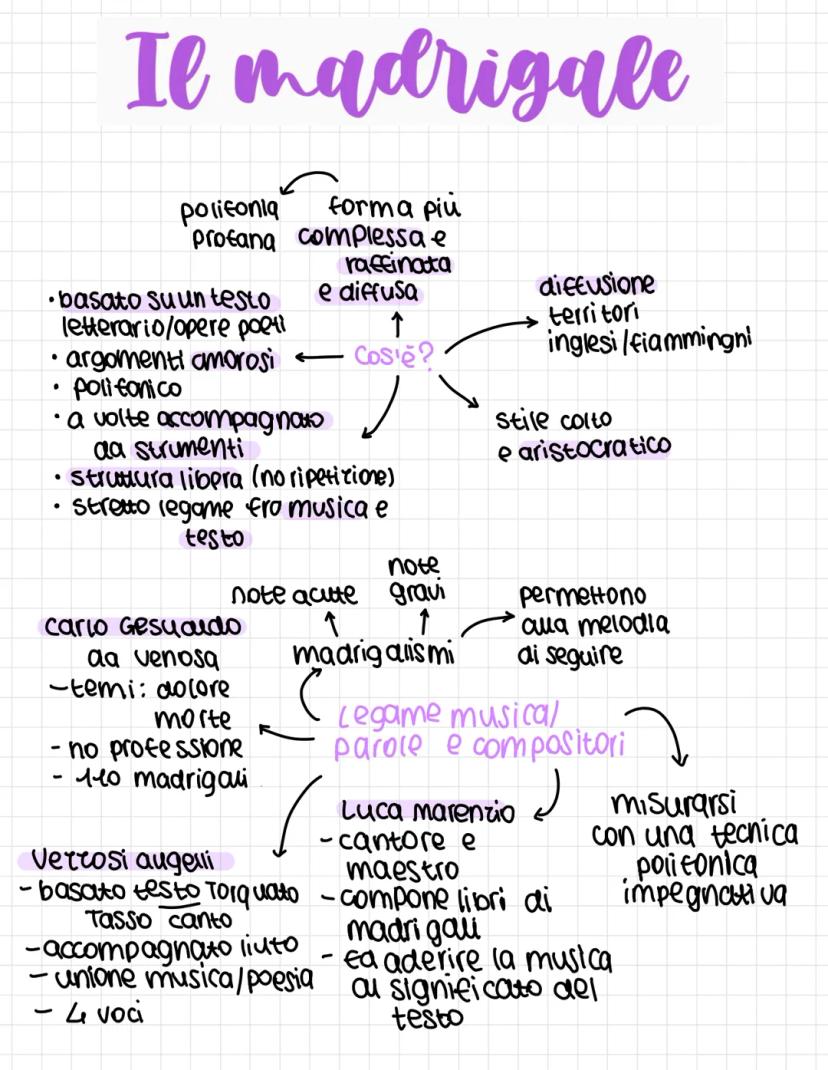 Il madrigale
polifonia
profana
forma più
complessa e
raffinata
e diffusa
diffusione
territori
inglesi/fiammingni
Cos'è?
• basato su un testo
letterario/opere poeti
• argomenti amorosi
• polifonico
• a volte accompagnato
da strumenti
• struttura libera (no ripetizione)
• stretto legame fra musica e
testo
stile colto
e aristocratico
note acute
note
gravi
permettono
alla melodia
di seguire
madrigalismi
Carlo Gesualdo
da venosa
- temi: dolore
morte
- no professione
- 110 madrigali
Legame musica/
parole e compositori
misurarsi
con una tecnica
polifonica
impegnativa
Luca marenzio
- cantore e
maestro
- compone libri di
madrigali
- fa aderire la musica
al significato del
testo
Vezzosi augelli
- basato testo Torquato
Tasso canto
- accompagnato liuto
- unione musica/poesia
- 4 voci